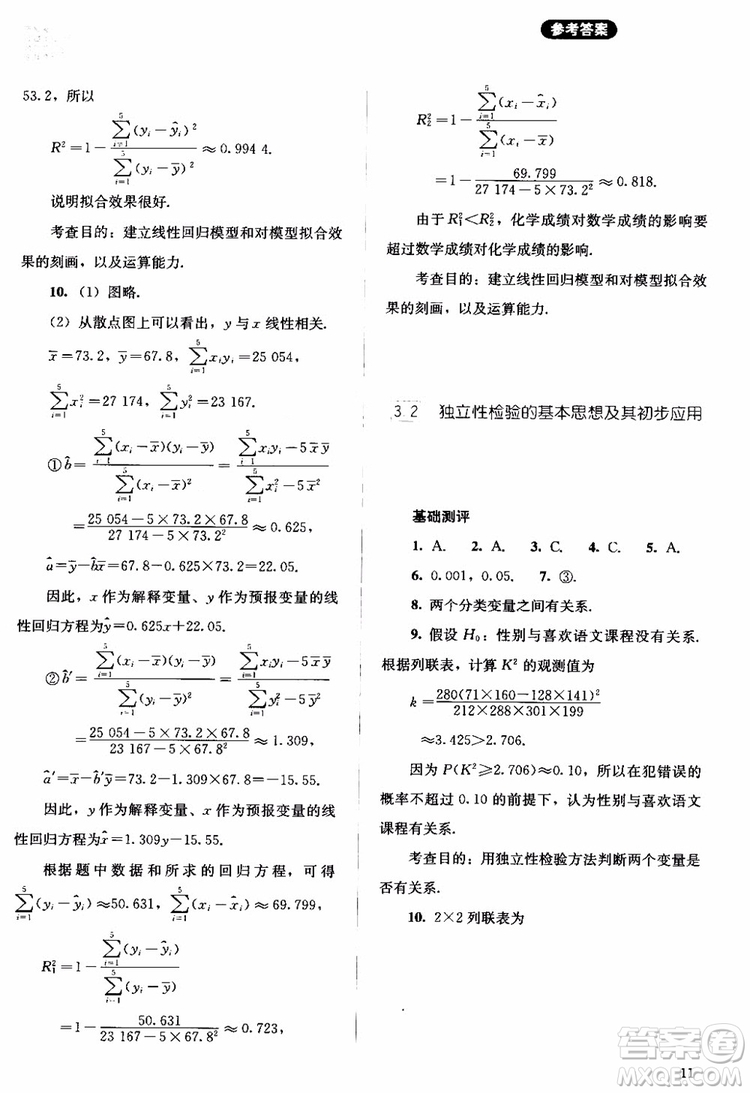 参考答案
53.2，所以
R²=1-\frac{\sum_{i=1}^{5}(y_i-\hat{y}_i)^2}{\sum_{i=1}^{5}(y_i-\overline{y})^2}≈0.994 4.
说明拟合效果很好.
考查目的：建立线性回归模型和对模型拟合效
果的刻画，以及运算能力.
10.（1）图略.
（2）从散点图上可以看出，y与x线性相关.
\overline{x}=73.2，\overline{y}=67.8，\sum_{i=1}^{5}x_iy_i=25 054，
\sum_{i=1}^{5}x_i^2=27 174，\sum_{i=1}^{5}y_i^2=23 167.
①\hat{b}=\frac{\sum_{i=1}^{5}(x_i-\overline{x})(y_i-\overline{y})}{\sum_{i=1}^{5}(x_i-\overline{x})^2}=\frac{\sum_{i=1}^{5}x_iy_i-5\overline{x}\,\overline{y}}{\sum_{i=1}^{5}x_i^2-5\overline{x}^2}
=\frac{25 054-5×73.2×67.8}{27 174-5×73.2²}≈0.625，
\hat{a}=\overline{y}-\hat{b}\overline{x}=67.8-0.625×73.2=22.05.
因此，x作为解释变量、y作为预报变量的线
性回归方程为\hat{y}=0.625x+22.05.
②\hat{b}'=\frac{\sum_{i=1}^{5}(x_i-\overline{x})(y_i-\overline{y})}{\sum_{i=1}^{5}(y_i-\overline{y})^2}=\frac{\sum_{i=1}^{5}x_iy_i-5\overline{x}\,\overline{y}}{\sum_{i=1}^{5}y_i^2-5\overline{y}^2}
=\frac{25 054-5×73.2×67.8}{23 167-5×67.8²}≈1.309，
\hat{a}'=\overline{x}-\hat{b}'\overline{y}=73.2-1.309×67.8=-15.55.
因此，y作为解释变量、x作为预报变量的线
性回归方程为\hat{x}=1.309y-15.55.
根据题中数据和所求的回归方程，可得
\sum_{i=1}^{5}(y_i-\hat{y}_i)≈50.631，\sum_{i=1}^{5}(x_i-\hat{x}_i)≈69.799，
R_1^2=1-\frac{\sum_{i=1}^{5}(y_i-\hat{y}_i)}{\sum_{i=1}^{5}(y_i-\overline{y})}
=1-\frac{50.631}{23 167-5×67.8²}≈0.723，
R_2^2=1-\frac{\sum_{i=1}^{5}(x_i-\hat{x}_i)}{\sum_{i=1}^{5}(x_i-\overline{x})}
=1-\frac{69.799}{27 174-5×73.2²}≈0.818.
由于R_1^2<R_2^2，化学成绩对数学成绩的影响要
超过数学成绩对化学成绩的影响.
考查目的：建立线性回归模型和对模型拟合效
果的刻画，以及运算能力.
3.2 独立性检验的基本思想及其初步应用
基础测评
1. A. 2. A. 3. C. 4. C. 5. A.
6. 0.001，0.05. 7. ③.
8. 两个分类变量之间有关系.
9. 假设H₀：性别与喜欢语文课程没有关系.
根据列联表，计算K²的观测值为
k=\frac{280(71×160-128×141)²}{212×288×301×199}
≈3.425>2.706.
因为P(K²≥2.706)≈0.10，所以在犯错误的
概率不超过0.10的前提下，认为性别与喜欢语文
课程有关系.
考查目的：用独立性检验方法判断两个变量是
否有关系.
10. 2×2列联表为
答案圈
MXQE.COM
11